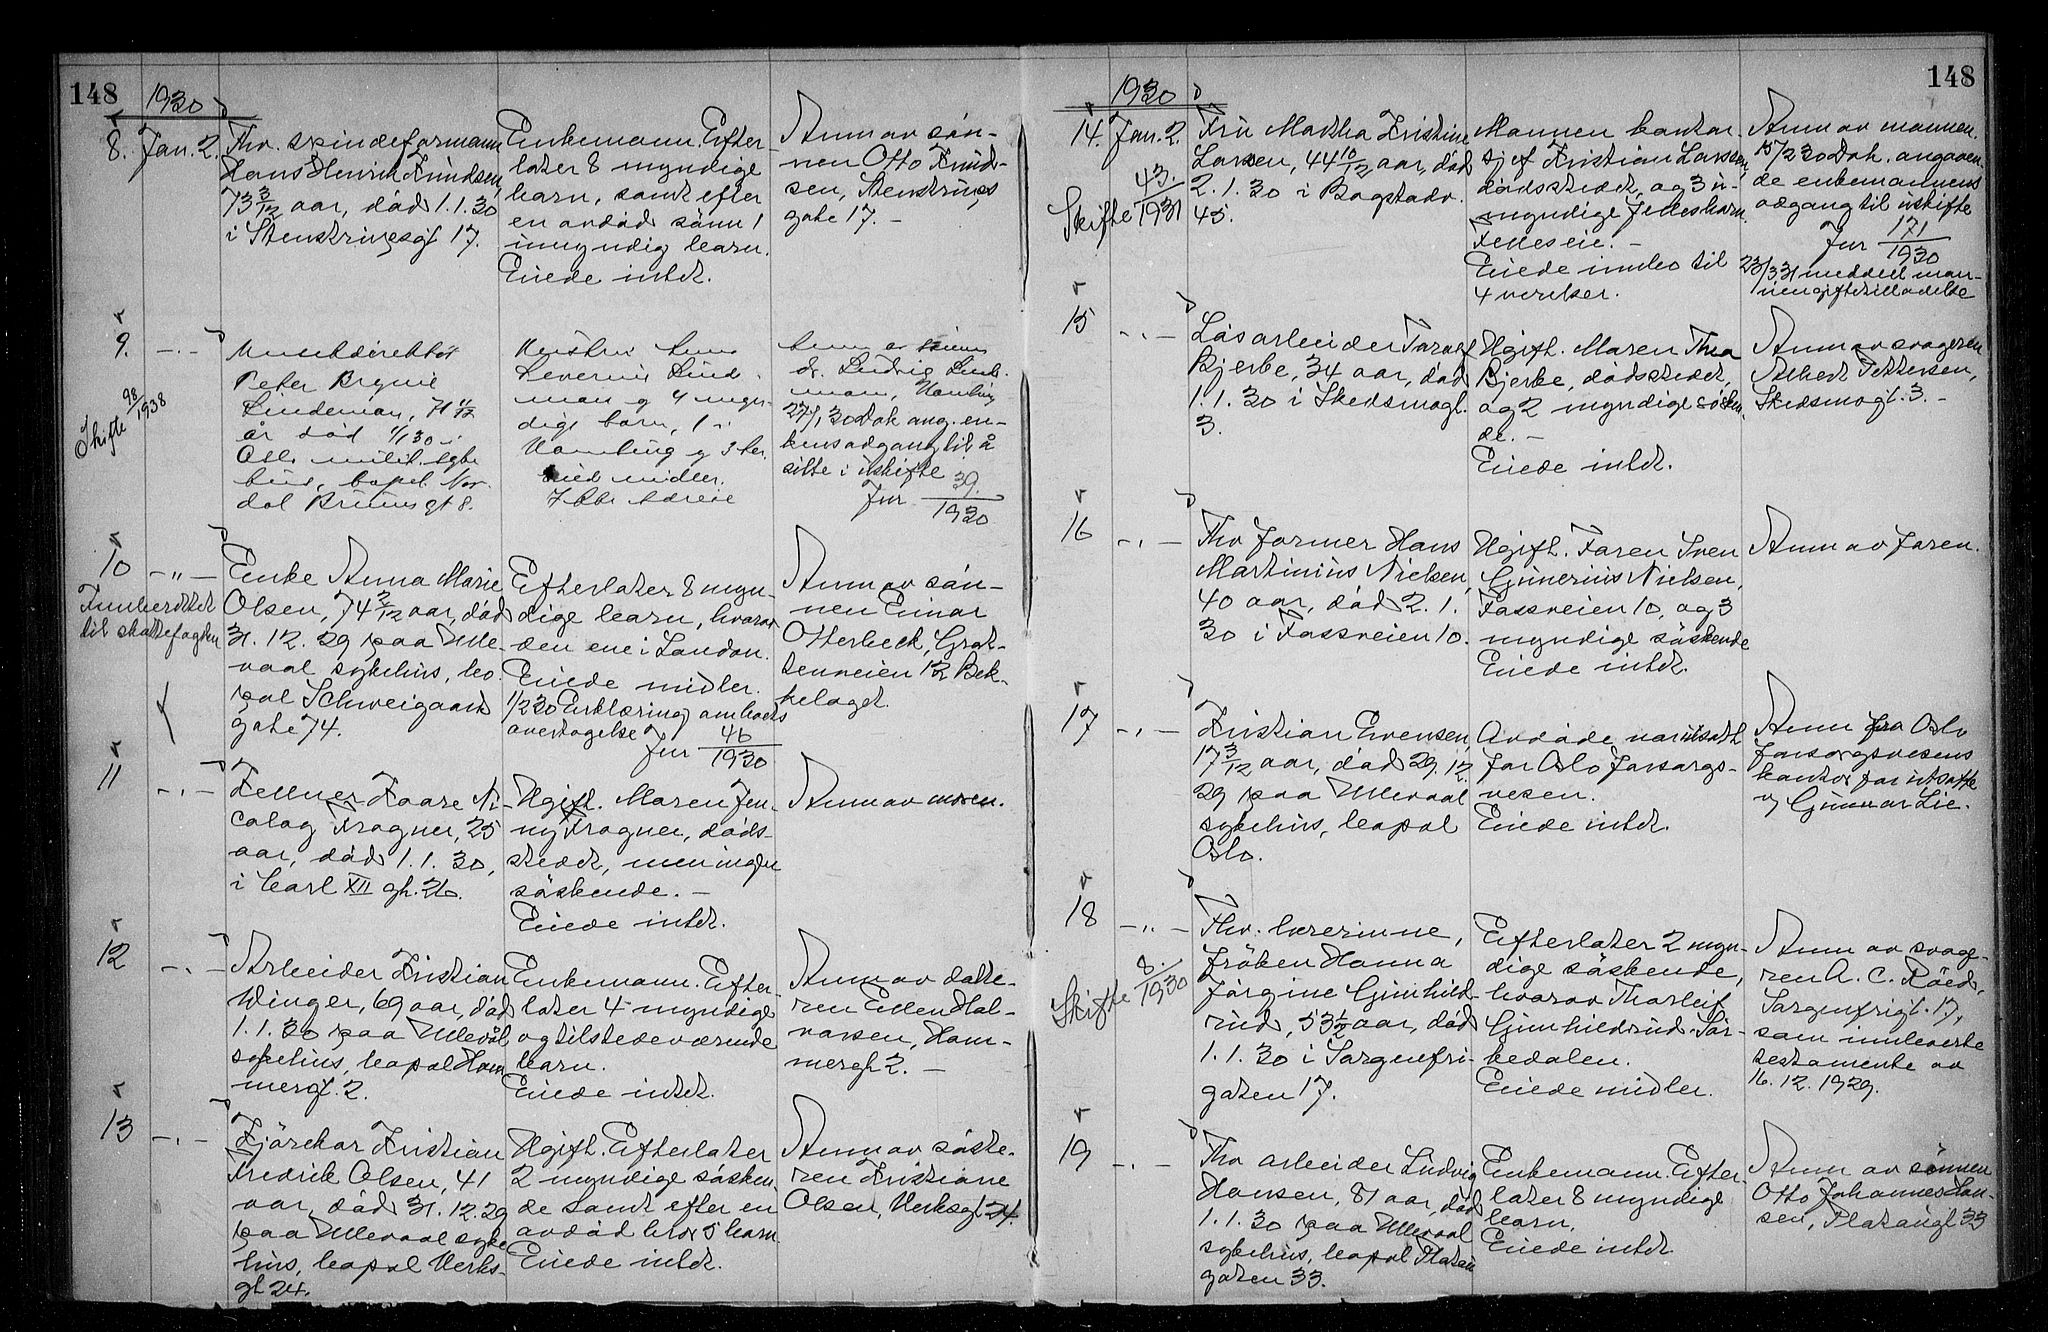 148
1930
8. Jan. 2. Fhv. spindeformann
Hans Henrik Knudsen,
73 3/12 aar, død 1.1.30
i Stenstrupsgt 17.
Enkemann. Efter-
later 8 myndige
barn, samt efter
en avdød sønn 1
umyndig barn.
Eiede intet.
Anm av søn-
nen Otto Knud-
sen, Stenstrups
gate 17. -
9. -.-
Skifte 98/1938
Musikdirektør
Peter Brynie
Lindeman, 71 11/12
år død 1/1 30 i
Oslo milit. syke
hus, bopel Nor
dal Brunsgt 8.
Severine Lind
man og 4 myn-
dige barn, 1 i
Hamburg og 3 her.
midler.
dr. Ludvig Lind
man, Hamburg
27/1 30 Dok ang. en-
kens adgang til å
sitte i uskifte
Jnr 39/1930
10 -"-
Innberettet
til skattefogden
Enke Anna Marie
Olsen, 74 2/12 aar, død
31.12.29 paa Ulle-
vaal sykehus, bo-
pal Schweigaards
gate 74.
Efterlater 8 myn-
dige barn, hvorav
den ene i London.
Eiede midler.
1/2 30 Erklæring om boets
overtagelse
Jnr 46/1930
Anm av søn-
nen Einar
Otterbeck, Grot-
tenveien 12 Bek-
kelaget.
11 -.-
Kellner Kaare Ni-
colay Frogner, 25
aar, død 1.1.30,
i Carl XII gt. 26.
Ugift. Moren Jen-
ny Frogner, døds-
stedet, men ingen
søskende. -
Eiede intet.
Anm av moren.
12 -.-
Arbeider Kristian
Winger, 69 aar, død
1.1.30 paa Ullevål
sykehus, bopal Ham
mersgt. 2.
Enkemann. Efter-
later 4 myndige
og tilstedeværende
barn.
Eiede intet.
Anm av datte-
ren Ellen Hal-
vorsen, Ham-
mersgt 2. -
13 -.-
Kjørekar Kristian
Fredrik Olsen, 41
aar, død 31.12.29
paa Ullevaal syke
hus, bopal Verks-
gt 24.
Ugift. Efterlater
2 myndige søsken
de samt efter en
avdød bror 5 barn
Eiede intet.
Anm av søste-
ren Kristiane
Olsen, Verksgt 24.
148
1930
14. Jan. 2.
Skifte 43./1931
Fru Martha Kristine
Larsen, 44 10/12 aar, død
2.1.30 i Bogstadv.
45.
Mannen kontor-
sjef Kristian Larsen,
dødsstedet, og 3 u-
myndige fellesbarn.
Felleseie. -
Eiede innbo til
4 værelser.
Anm av mannen.
15/2 30 Dok. angaaen-
de enkemannens
adgang til uskifte
Jnr 171/1930
23/3 31 meddelt man-
nen giftetilladelse
15 -.-
Løsarbeider Toralf
Bjerke, 34 aar, død
1.1.30 i Skedsmogt.
3.
Ugift. Moren Thea
Bjerke, dødsstedet,
og 2 myndige søsken-
de. -
Eiede intet.
Anm av svogeren
Albert Pettersen,
Skedsmogt. 3. -
16 -.-
Fhv former Hans
Martinius Nielsen,
40 aar, død 2.1.
30 i Fossveien 10.
Ugift. Faren Sven
Gunerius Nielsen,
Fossveien 10, og 3
myndige søskende
Eiede intet.
Anm av faren.
17 -.-
Kristian Evensen,
17 3/12 aar, død 29.12.
29 paa Ullevaal
sykehus, bopal
Oslo.
Avdøde var utsatt
for Oslo forsorgs-
vesen.
Eiede intet.
Anm fra Oslo
forsorgsvesens
kontor for utsatte
v/ Gunnar Lie.
18 -"-
Skifte 8./1930
Fhv. lærerinne,
frøken Hanna
Jørgine Gunhild-
rud, 53 1/2 aar, død
1.1.30 i Sorgenfri-
gaten 17.
Efterlater 2 myn-
dige søskende,
hvorav Thorleif
Gunhildrud Sør-
kedalen.
Eiede midler.
Anm av svoge-
ren A. C. Röed,
Sorgenfrigt. 17,
som innleverte
testamente av
16.12.1929.
19 -.-
Fhv arbeider Ludvig
Hansen, 81 aar, død
1.1.30 paa Ullevaal
sykehus, bopal Platou
gaten 33.
Enkemann. Efter-
later 8 myndige
barn.
Eiede intet
Anm av sønnen
Otto Johannes Han-
sen, Platougt 33